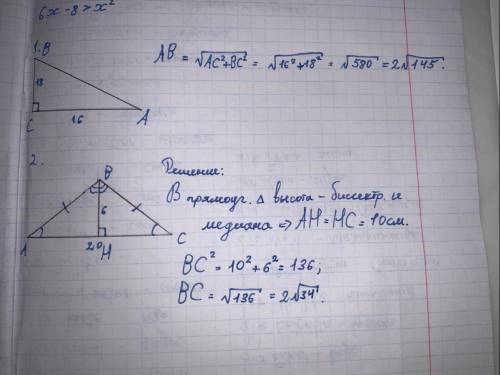 6x - 8 > x²
1.
B
18
C
16
A
AB = √AC²+BC² = √16²+18² = √580 = 2√145.
2.
B
6
A
20
H
C
Решение:
В прямоуг. Δ высота - биссектр. и
медиана => AH = HC = 10см.
BC² = 10² + 6² = 136;
BC = √136 = 2√34.